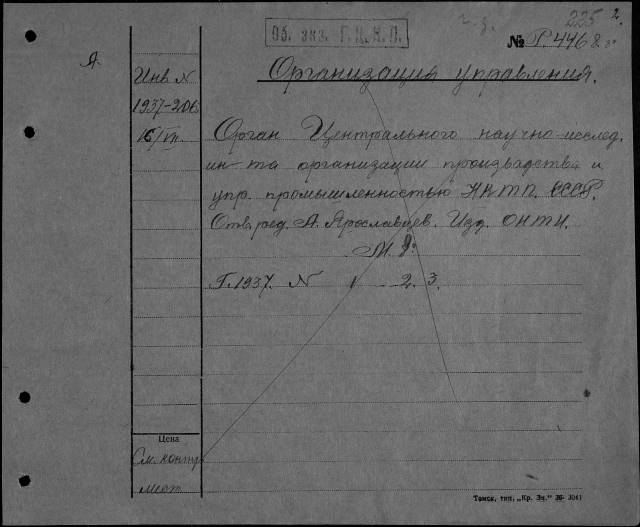 225 2.
Об. экз. Г.Ц.К.О.
№ Р.4468
А
Организация управления.
Инв. N
1937-206
16/VII
Орган Центрального научно-исслед.
ин-та организации производства и
упр. промышленностью НКТП СССР.
Отв. ред. А. Ярославцев. Изд. ОНТИ.
М. 8°
Г. 1937. N 1 2. 3.
Цена
См. контр.
лист
Томск, тип. „Кр. Зн." 36- 3041